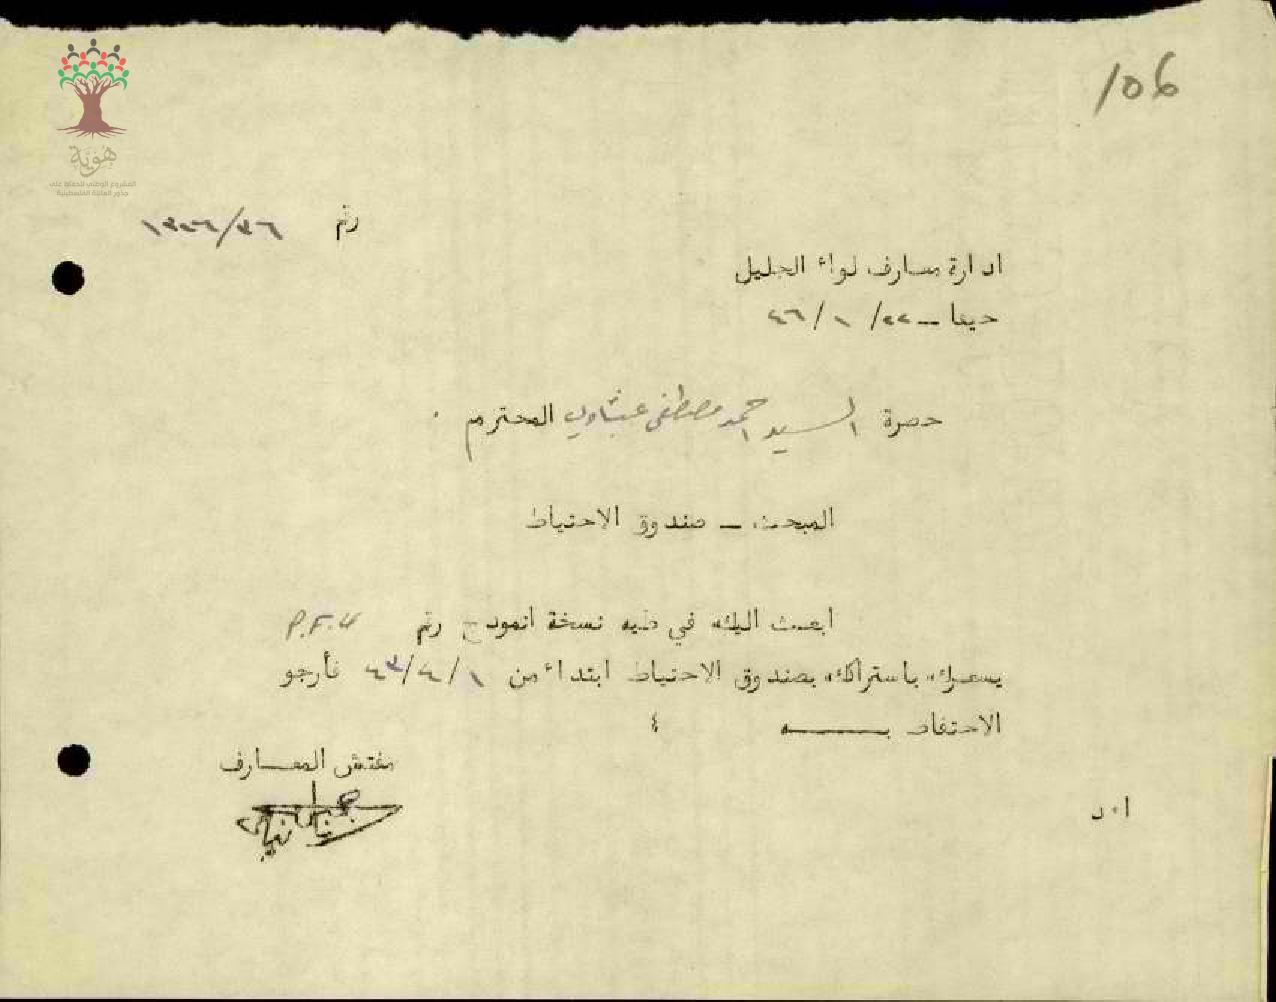 106
هوية
المشروع الوطني للحفاظ على
جذور العائلة الفلسطينية
رقم ١٣٤٦/٣٦
ادارة معارف لواء الجليل
حيفا – ٢٢/ ١ /٤٦
حضرة السيد احمد مصطفى عبشاوي المحترم .
المبحث – صندوق الاحتياط
ابعث اليك في طيه نسخة انموذج رقم P.F.4
يشعرك باشتراكك بصندوق الاحتياط ابتداء من ٤٣/٤/١ فأرجو
الاحتفاظ بـــــه ؛
مفتش المعــارف